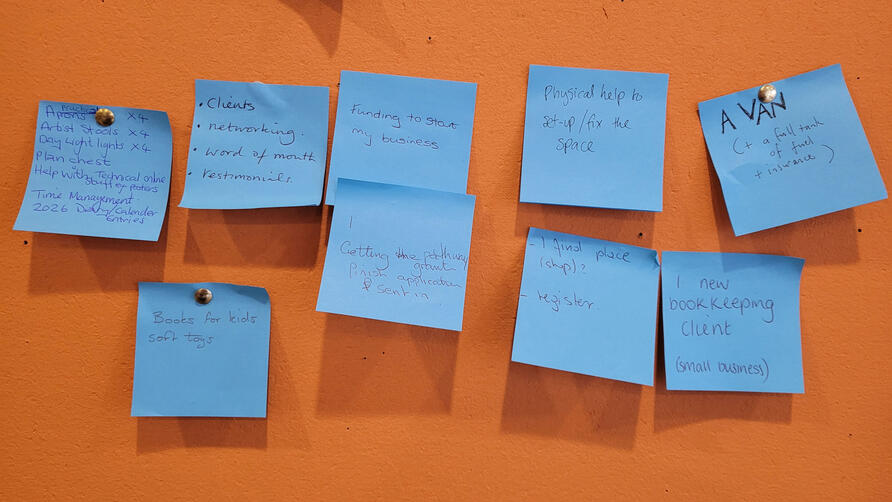 Practical
Aprons x4
Artist Stools x4
Day Light lights x4
Plan chest
Help with Technical online
stuff eg posters
Time Management
2026 Diary/Calender
Entries
• Clients
• networking.
• word of mouth
• testimonials.
Funding to start
my business
1
Getting the pathway
grant
finish application
& sent in
Physical help to
set-up/fix the
space
A VAN
(+ a full tank
of fuel
+ insurance)
Books for kids
soft toys
- I find place
(shop)?
- register.
1 new
bookkeeping
client
(small business)